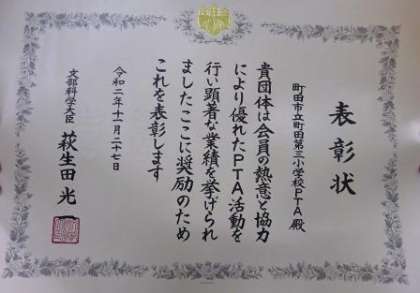 表彰状
町田市立町田第三小学校PTA殿
貴団体は会員の熱意と協力
により優れたPTA活動を
行い顕著な業績を挙げられ
ましたここに奨励のため
これを表彰します
令和二年十一月二十七日
文部科学大臣 萩生田光一